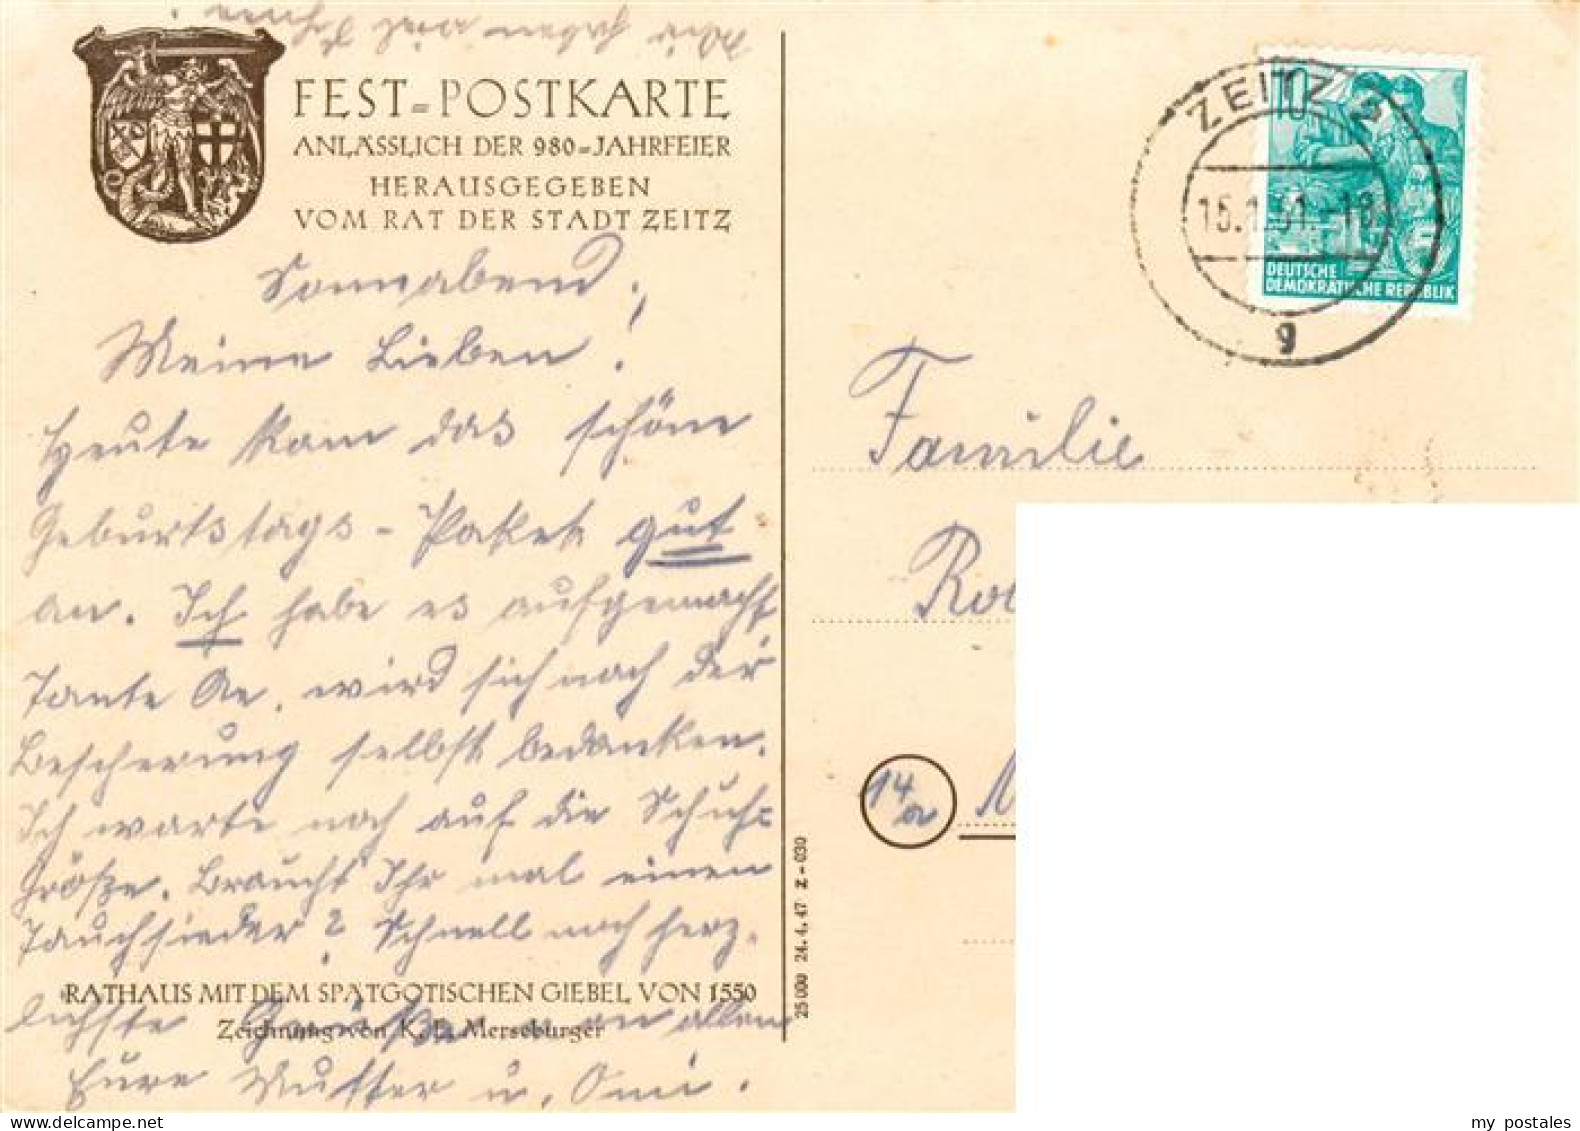 FEST=POSTKARTE
ANLÄSSLICH DER 980=JAHRFEIER
HERAUSGEGEBEN
VOM RAT DER STADT ZEITZ
Sonnabend.
Meine Lieben!
Heute kam das schöne
Geburtstags-Paket gut
an. Ich habe es aufgemacht,
Tante wird sich nach der
Bescherung selbst bedanken.
Ich warte noch auf die Schuh=
größe. Braucht Ihr mal einen
Tauchsieder? Schnell noch herz-
lichste Grüße von allen
Eure Mutter u. Omi.
Wir haben viel
RATHAUS MIT DEM SPÄTGOTISCHEN GIEBEL VON 1550
Zeichnung von K. E. Merseburger
25 000 24. 4. 47 Z-030
ZEITZ 2
g
10
DEUTSCHE
DEMOKRATISCHE REPUBLIK
Familie
14a
my postales